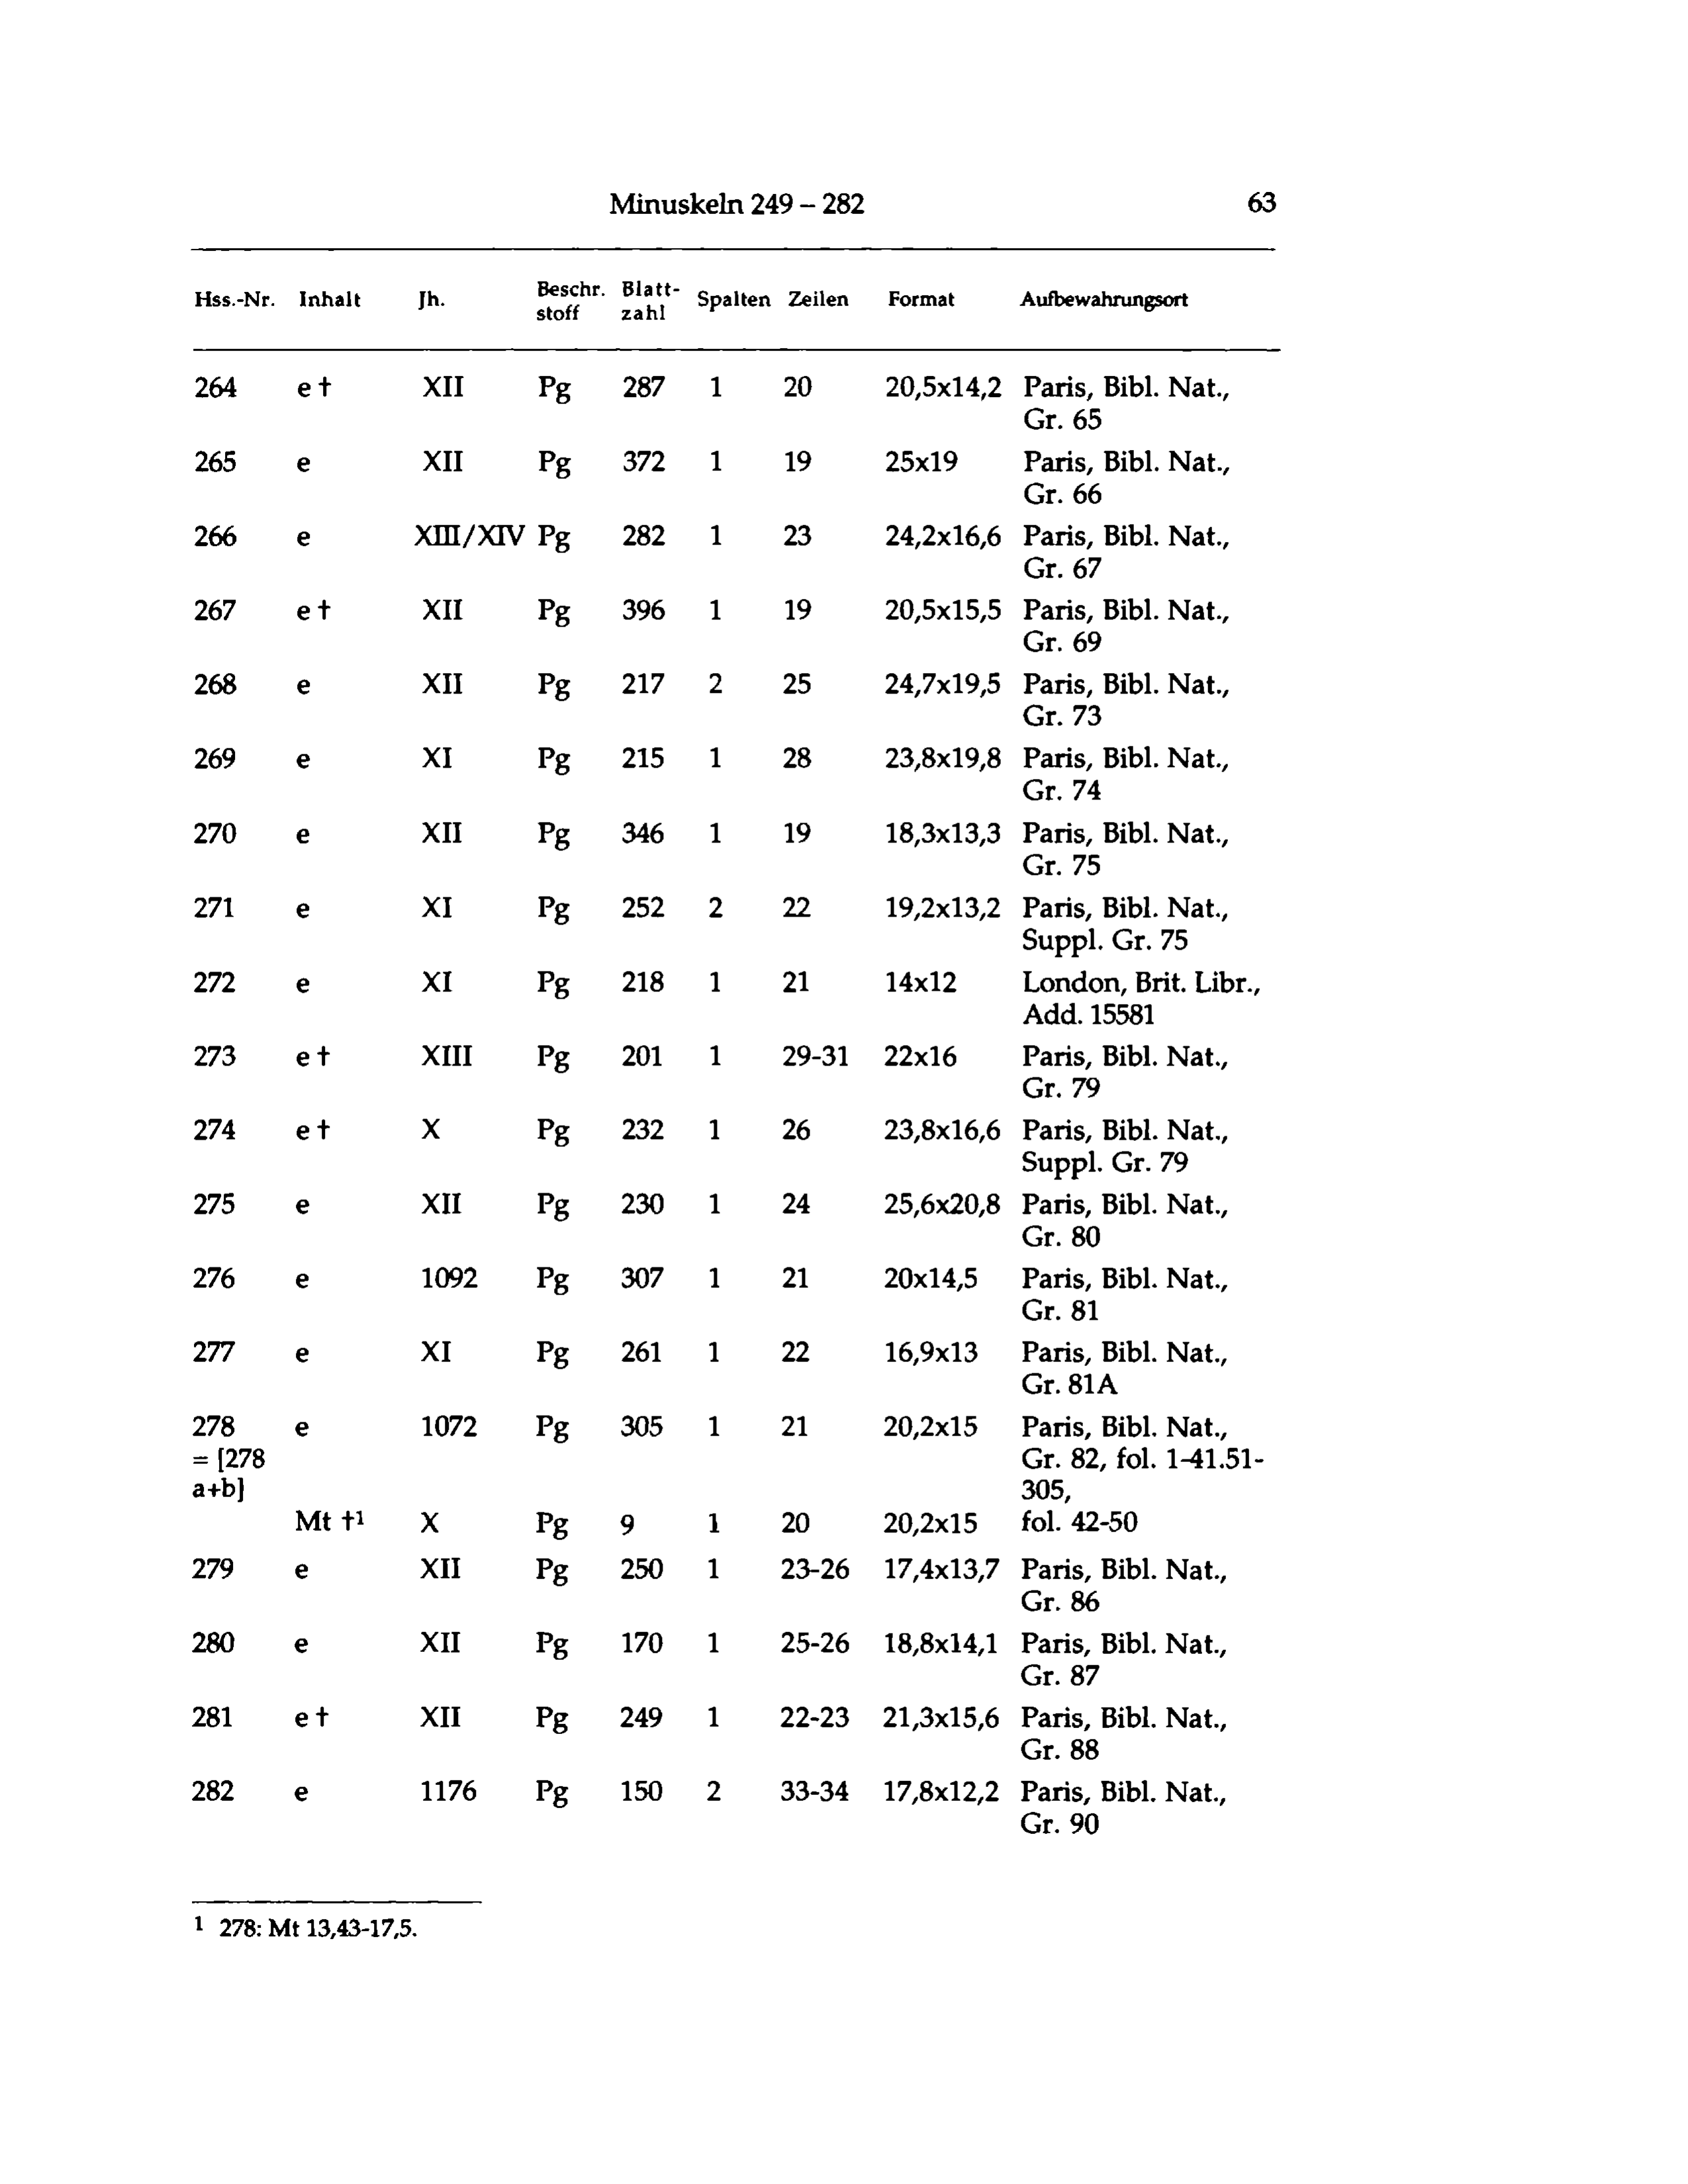 Minuskeln 249 – 282 63
Hss.-Nr. Inhalt Jh. Beschr. stoff Blatt- zahl Spalten Zeilen Format Aufbewahrungsort
264 e † XII Pg 287 1 20 20,5x14,2 Paris, Bibl. Nat.,
Gr. 65
265 e XII Pg 372 1 19 25x19 Paris, Bibl. Nat.,
Gr. 66
266 e XIII/XIV Pg 282 1 23 24,2x16,6 Paris, Bibl. Nat.,
Gr. 67
267 e † XII Pg 396 1 19 20,5x15,5 Paris, Bibl. Nat.,
Gr. 69
268 e XII Pg 217 2 25 24,7x19,5 Paris, Bibl. Nat.,
Gr. 73
269 e XI Pg 215 1 28 23,8x19,8 Paris, Bibl. Nat.,
Gr. 74
270 e XII Pg 346 1 19 18,3x13,3 Paris, Bibl. Nat.,
Gr. 75
271 e XI Pg 252 2 22 19,2x13,2 Paris, Bibl. Nat.,
Suppl. Gr. 75
272 e XI Pg 218 1 21 14x12 London, Brit. Libr.,
Add. 15581
273 e † XIII Pg 201 1 29-31 22x16 Paris, Bibl. Nat.,
Gr. 79
274 e † X Pg 232 1 26 23,8x16,6 Paris, Bibl. Nat.,
Suppl. Gr. 79
275 e XII Pg 230 1 24 25,6x20,8 Paris, Bibl. Nat.,
Gr. 80
276 e 1092 Pg 307 1 21 20x14,5 Paris, Bibl. Nat.,
Gr. 81
277 e XI Pg 261 1 22 16,9x13 Paris, Bibl. Nat.,
Gr. 81A
278 e 1072 Pg 305 1 21 20,2x15 Paris, Bibl. Nat.,
= [278 Gr. 82, fol. 1-41.51-
a+b] 305,
Mt †¹ X Pg 9 1 20 20,2x15 fol. 42-50
279 e XII Pg 250 1 23-26 17,4x13,7 Paris, Bibl. Nat.,
Gr. 86
280 e XII Pg 170 1 25-26 18,8x14,1 Paris, Bibl. Nat.,
Gr. 87
281 e † XII Pg 249 1 22-23 21,3x15,6 Paris, Bibl. Nat.,
Gr. 88
282 e 1176 Pg 150 2 33-34 17,8x12,2 Paris, Bibl. Nat.,
Gr. 90
¹ 278: Mt 13,43-17,5.